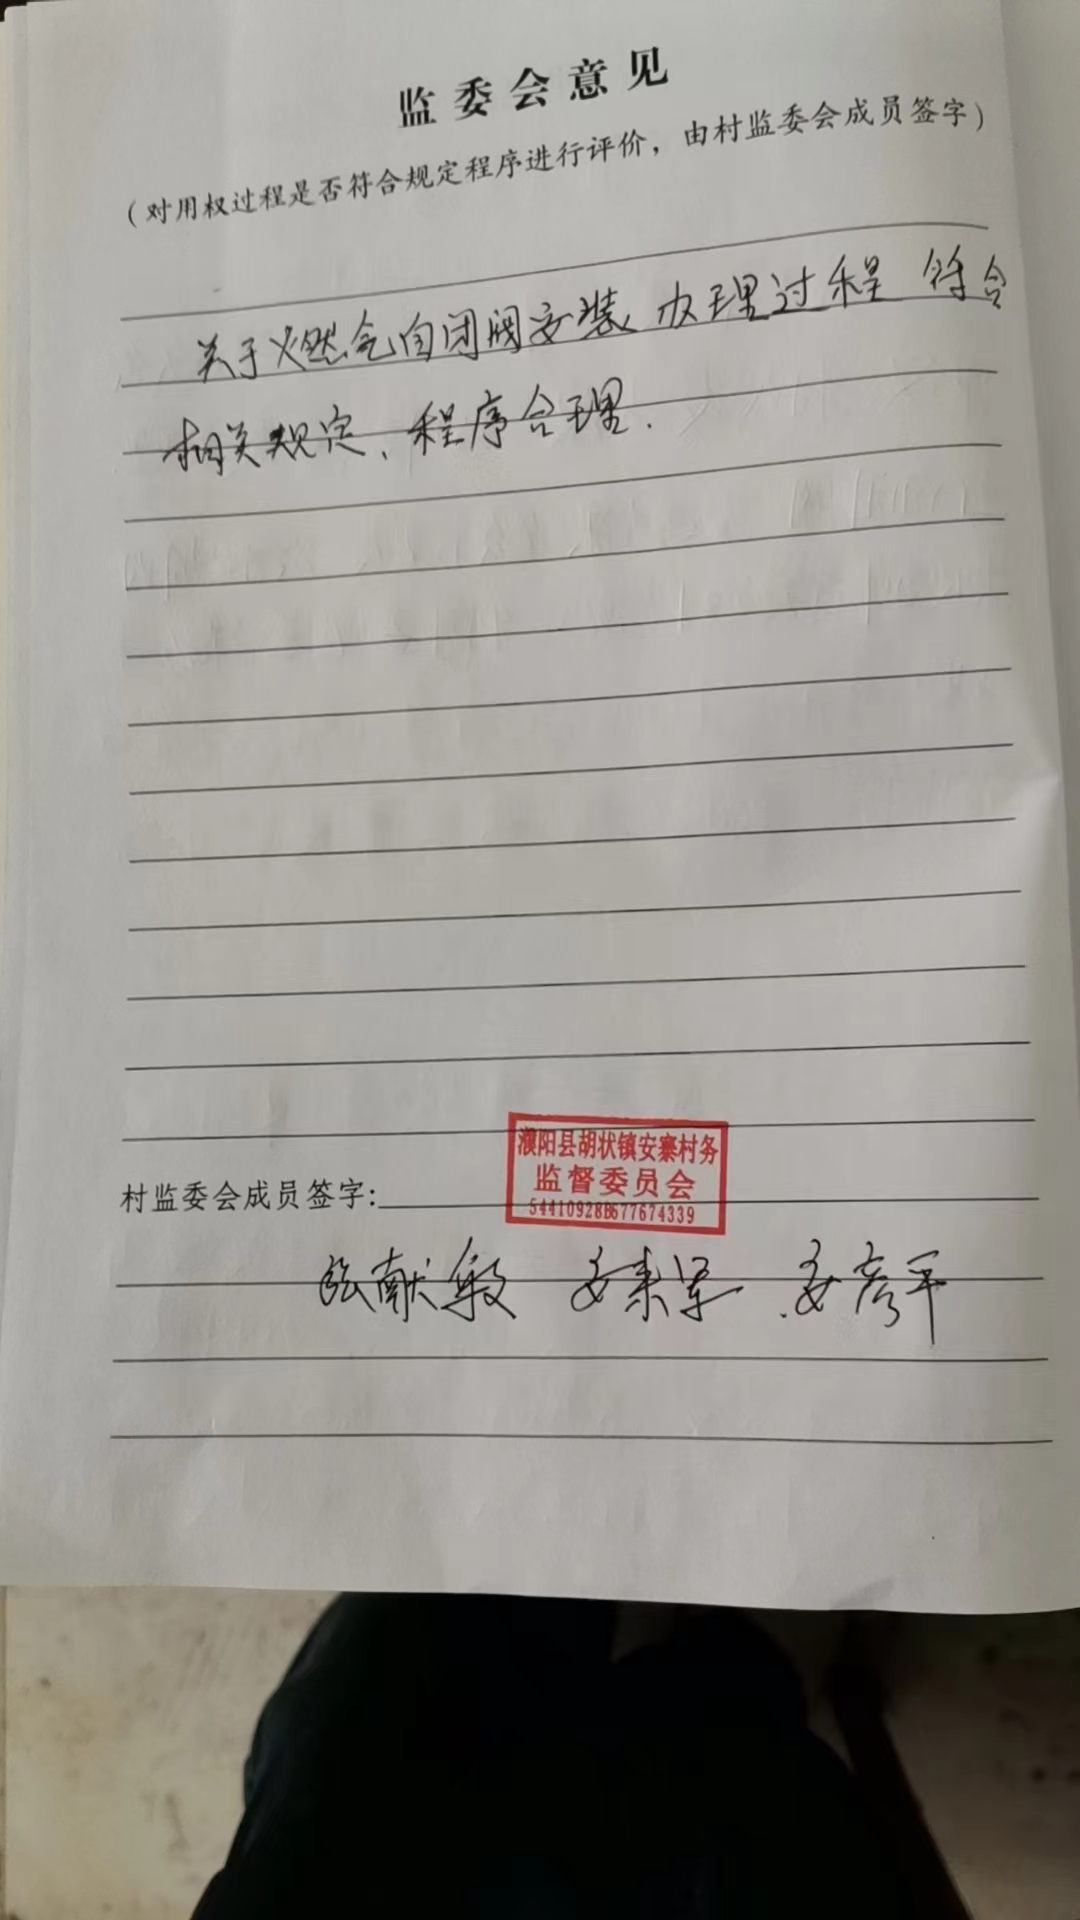 监委会意见
（对用权过程是否符合规定程序进行评价，由村监委会成员签字）
关于燃气自闭阀安装办理过程 符合
相关规定、程序合理.
濮阳县胡状镇安寨村务
监督委员会
54410928B677674339
村监委会成员签字:
张献敏 安素军 安彦平